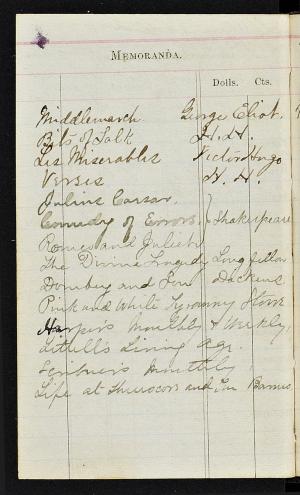 MEMORANDA.
Dolls. Cts.
Middlemarch George Eliot.
Bits of Talk H. H.
Les Miserables Victor Hugo
Verses H. H.
Julius Caesar.
Comedy of Errors. } Shakespeare
Romeo and Juliet
The Divine Tragedy Longfellow
Dombey and Son Dickens
Pink and White Tyranny Stowe
Harpers Monthly & Weekly,
Littell's Living Age.
Scribners Monthly
Life at and in Barns